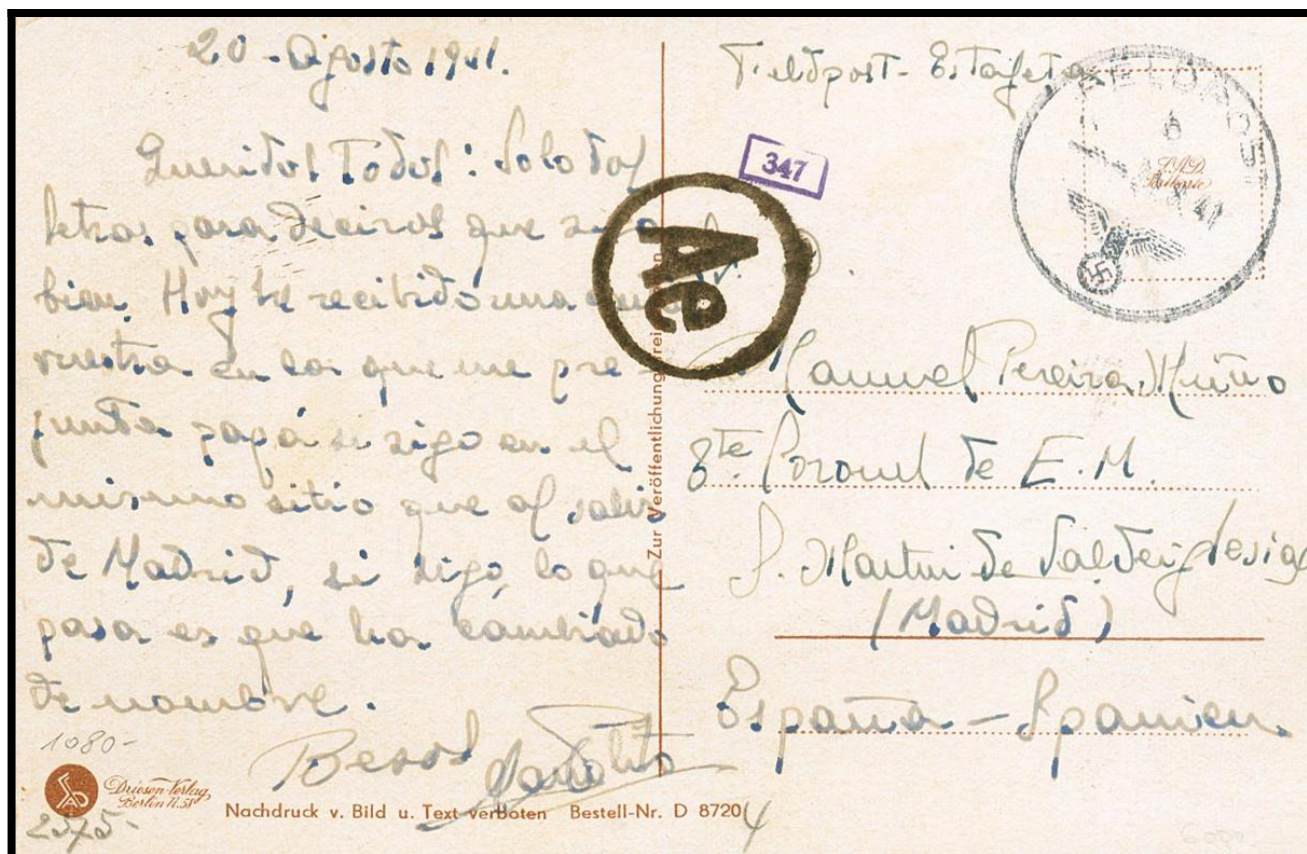 20 - Agosto 1941.
Queridos Todos: Solo dos
letras para deciros que sigo
bien. Hoy he recibido una
vuestra en la que me pre-
gunta papá si sigo en el
mismo sitio que al salir
de Madrid, si sigo, lo que
pasa es que ha cambiado
de nombre.
Besos
1080-
Driesen-Verlag
Berlin
2575-
Nachdruck v. Bild u. Text verboten Bestell-Nr. D 8720
4
Zur Veröffentlichung frei
Feldpost - Estafeta
FELDPOST
347
Ae
Manuel Pereira Muiño
Tte Coronel de E.M.
S. Martin de Valdeiglesias
(Madrid)
España - Spanien.